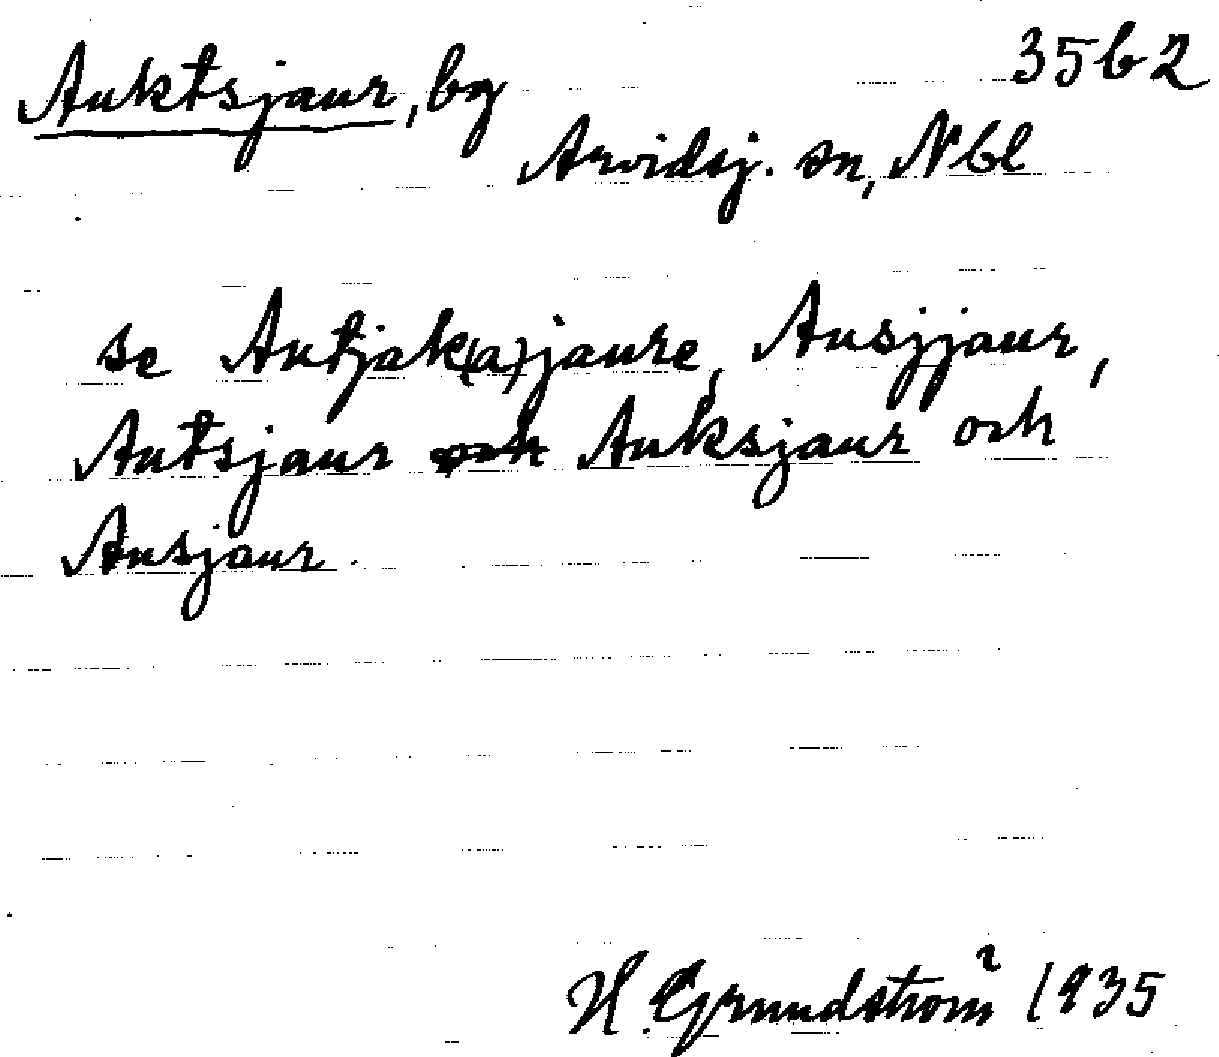 Auktsjaur, by 35b2
Arvidsj. sn, Nbl
se Autjak(a)jaure, Ausjjaur,
Autsjaur och Auksjaur och
Ausjaur.
H. Grundström 1935